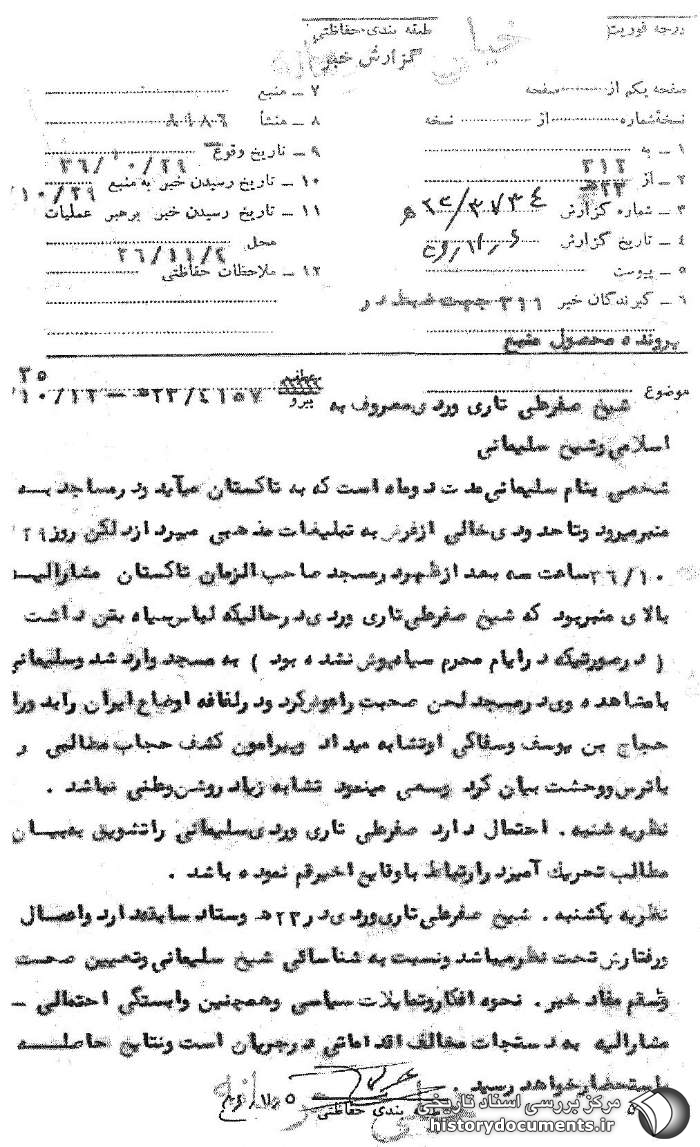 درجه فوریت
طبقه بندی حفاظتی
خیلی محرمانه
گزارش خبر
صفحه یکم از صفحه
نسخه شماره از نسخه
۱ ـ به
۲ ـ از ۳۱۲
۲۳ه
۳ ـ شماره گزارش
۴ ـ تاریخ گزارش
۵ ـ پیوست
۶ ـ گیرندگان خبر ۳۱۱ جهت ضبط در
پرونده محصول منبع
۷ ـ منبع
۸ ـ منشأ ۸۱۸۶
۹ ـ تاریخ وقوع ۳۶/۱۰/۲۹
۱۰ ـ تاریخ رسیدن خبر به منبع ۱۰/۲۹/
۱۱ ـ تاریخ رسیدن خبر برهبر عملیات
محل ۳۶/۱۱/۴
۱۲ ـ ملاحظات حفاظتی
موضوع شیخ صفرعلی تاری وردی معروف به
پیرو ۲۳/۴۱۵۷ه ـ ۱۰/۱۲/
۳۵
اسلامی و شیخ سلیمانی
شخصی بنام سلیمانی مدت دو ماه است که به تاکستان میآید و در مساجد به
منبر میرود و تا حدودی خالی از غرض به تبلیغات مذهبی میپردازد لکن روز ۲۹/
۳۶/۱۰ ساعت سه بعد از ظهر در مسجد صاحب الزمان تاکستان مشارالیه
بالای منبر بود که شیخ صفرعلی تاری وردی در حالیکه لباس سیاه بتن داشت
( در صورتیکه در ایام محرم سیاهپوش نشده بود ) به مسجد وارد شد و سلیمانی
با مشاهده وی در مسجد لحن صحبت را عوض کرد و در لفافه اوضاع ایران را بدوران
حجاج بن یوسف و سفاکی او تشابه میداد و پیرامون کشف حجاب مطالبی
با ترس و وحشت بیان کرد و سعی مینمود تشابه زیاد روشن و علنی نباشد .
نظریه شنبه . احتمال دارد صفرعلی تاری وردی سلیمانی را تشویق به بیان
مطالب تحریک آمیز در ارتباط با وقایع اخیر قم نموده باشد .
نظریه یکشنبه . شیخ صفرعلی تاری وردی در ۲۳ه و ستاد سابقه دارد و اعمال
و رفتارش تحت نظر میباشد و نسبت به شناسائی شیخ سلیمانی و تعیین صحت
و سقم مفاد خبر . نحوه افکار و تمایلات سیاسی و همچنین وابستگی احتمالی ـ
مشارالیه به دستجات مخالف اقداماتی در جریان است و نتایج حاصله
باستحضار خواهد رسید .
طبقه بندی حفاظتی
مرکز بررسی اسناد تاریخی
historydocuments.ir